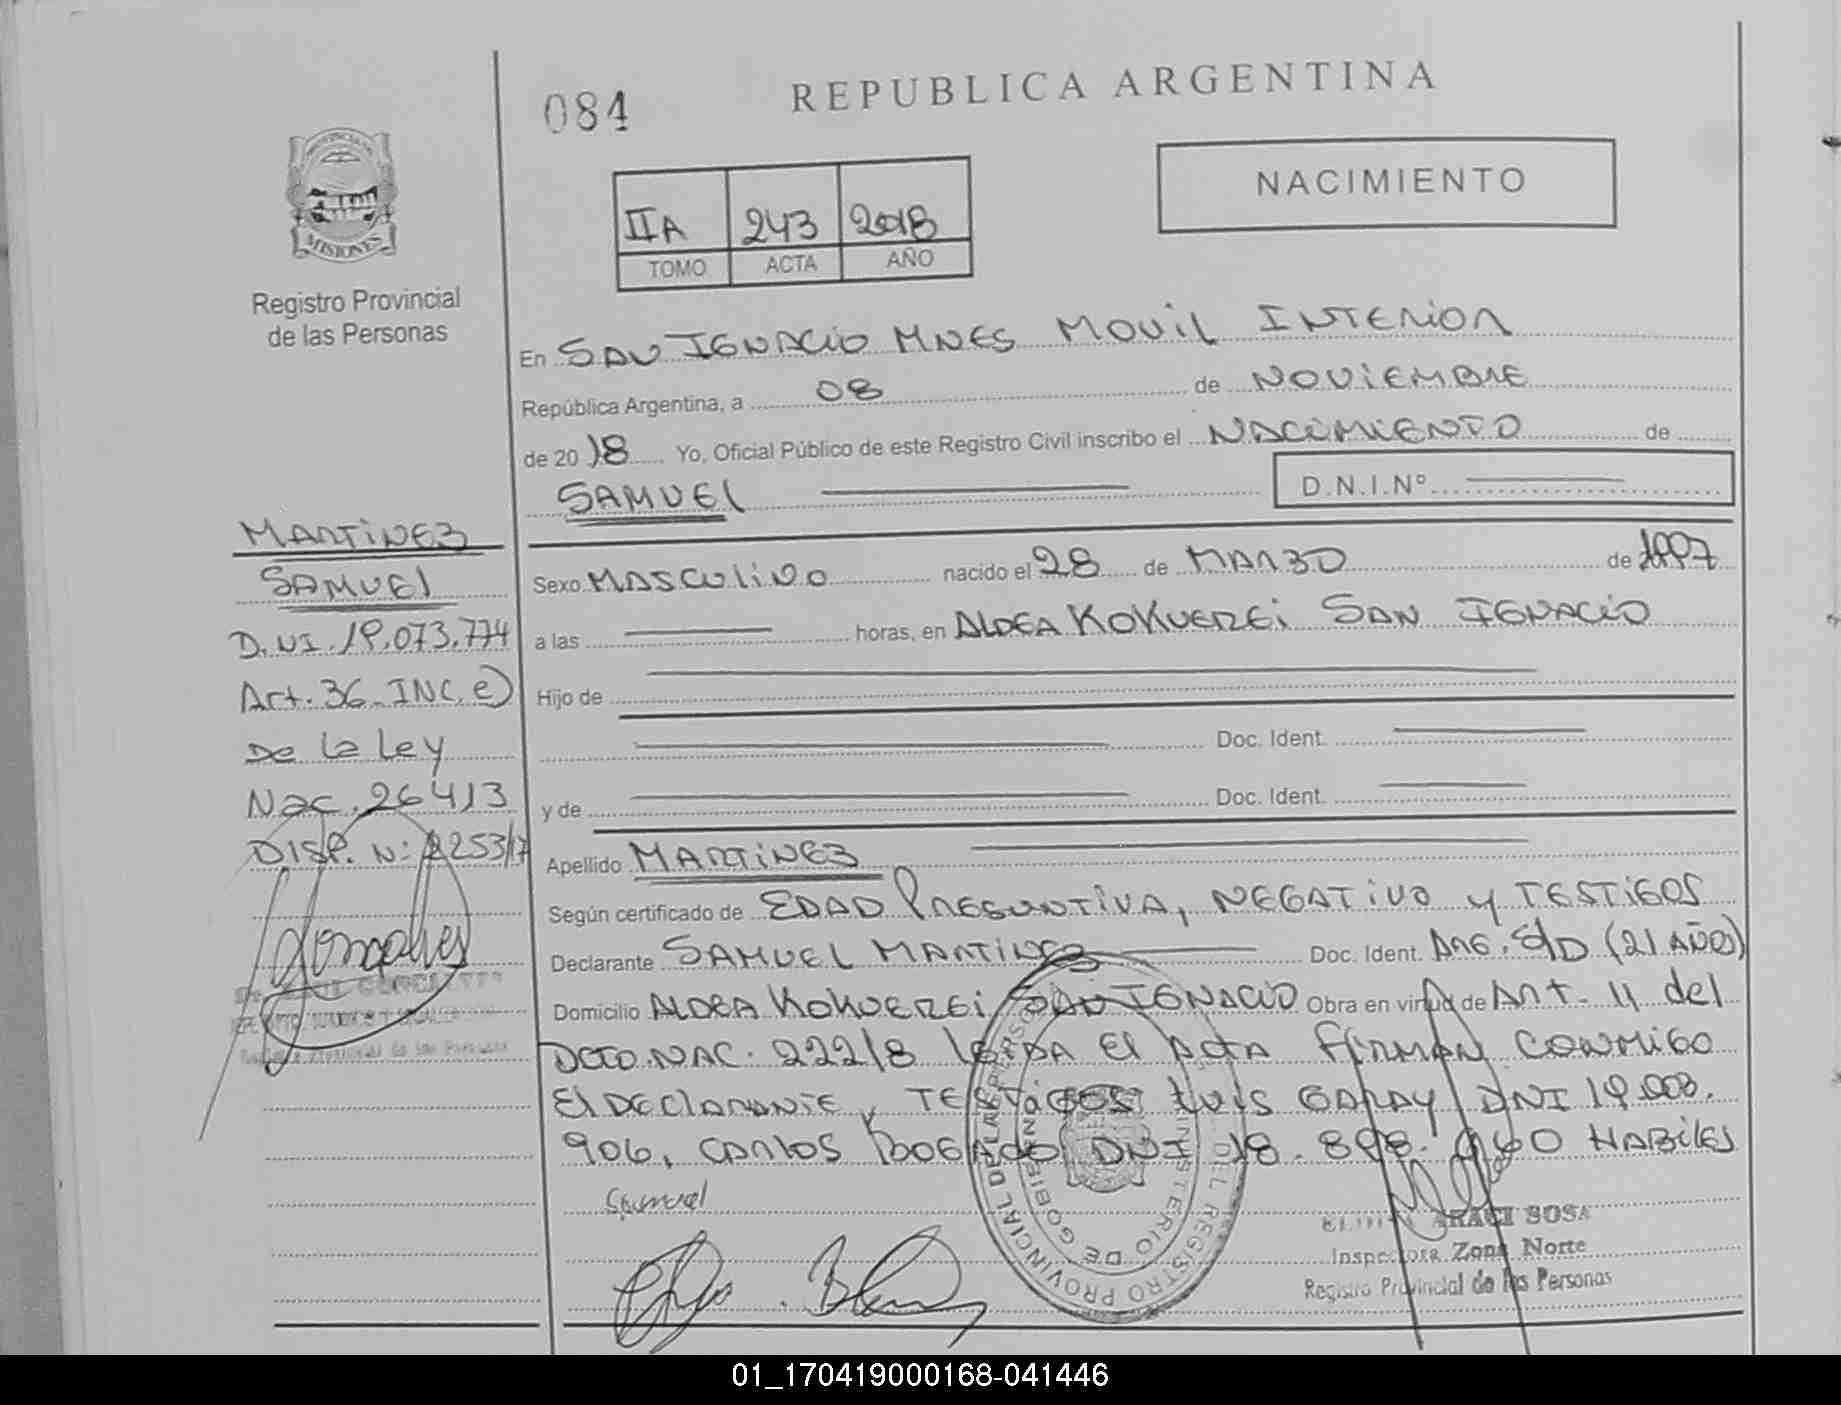 084
REPUBLICA ARGENTINA
NACIMIENTO
IIA 243 2018
TOMO ACTA AÑO
PROVINCIA DE
MISIONES
Registro Provincial
de las Personas
En SAN IGNACIO MNES MOVIL INTERIOR
República Argentina, a 08 de NOVIEMBRE
de 2018 Yo, Oficial Público de este Registro Civil inscribo el NACIMIENTO de
SAMUEL D.N.I.Nº
Sexo MASCULINO nacido el 28 de MARZO de 1997
a las horas, en ALDEA KOKUEREI SAN IGNACIO
Hijo de
Doc. Ident.
y de Doc. Ident.
Apellido MARTINEZ
Según certificado de EDAD PRESUNTIVA, NEGATIVO y TESTIGOS
Declarante SAMUEL MARTINEZ Doc. Ident. ARG. S/D (21 AÑOS)
Domicilio ALDEA KOKUEREI SAN IGNACIO Obra en virtud de ART. 11 del
DCTO.NAC. 222/8 LEIDA El ACTA FIRMAN CONMIGO
El DEClARANTE y TESTIGOS LUIS GARAY DNI 19.003.
906, CARLOS BOGADO DNI 18.898. HABILES
Samuel
MARTINEZ
SAMUEl
D.NI.19.073.774
Art. 36 INC. e)
De la Ley
Nac. 26413
DISP. N: 2253/17
Gonzalves
Registro Provincial de las Personas
REGISTRO PROVINCIAL DE LAS PERSONAS
MINISTERIO DE GOBIERNO
ARACI SOSA
Inspectora Zona Norte
Registro Provincial de las Personas
01_170419000168-041446